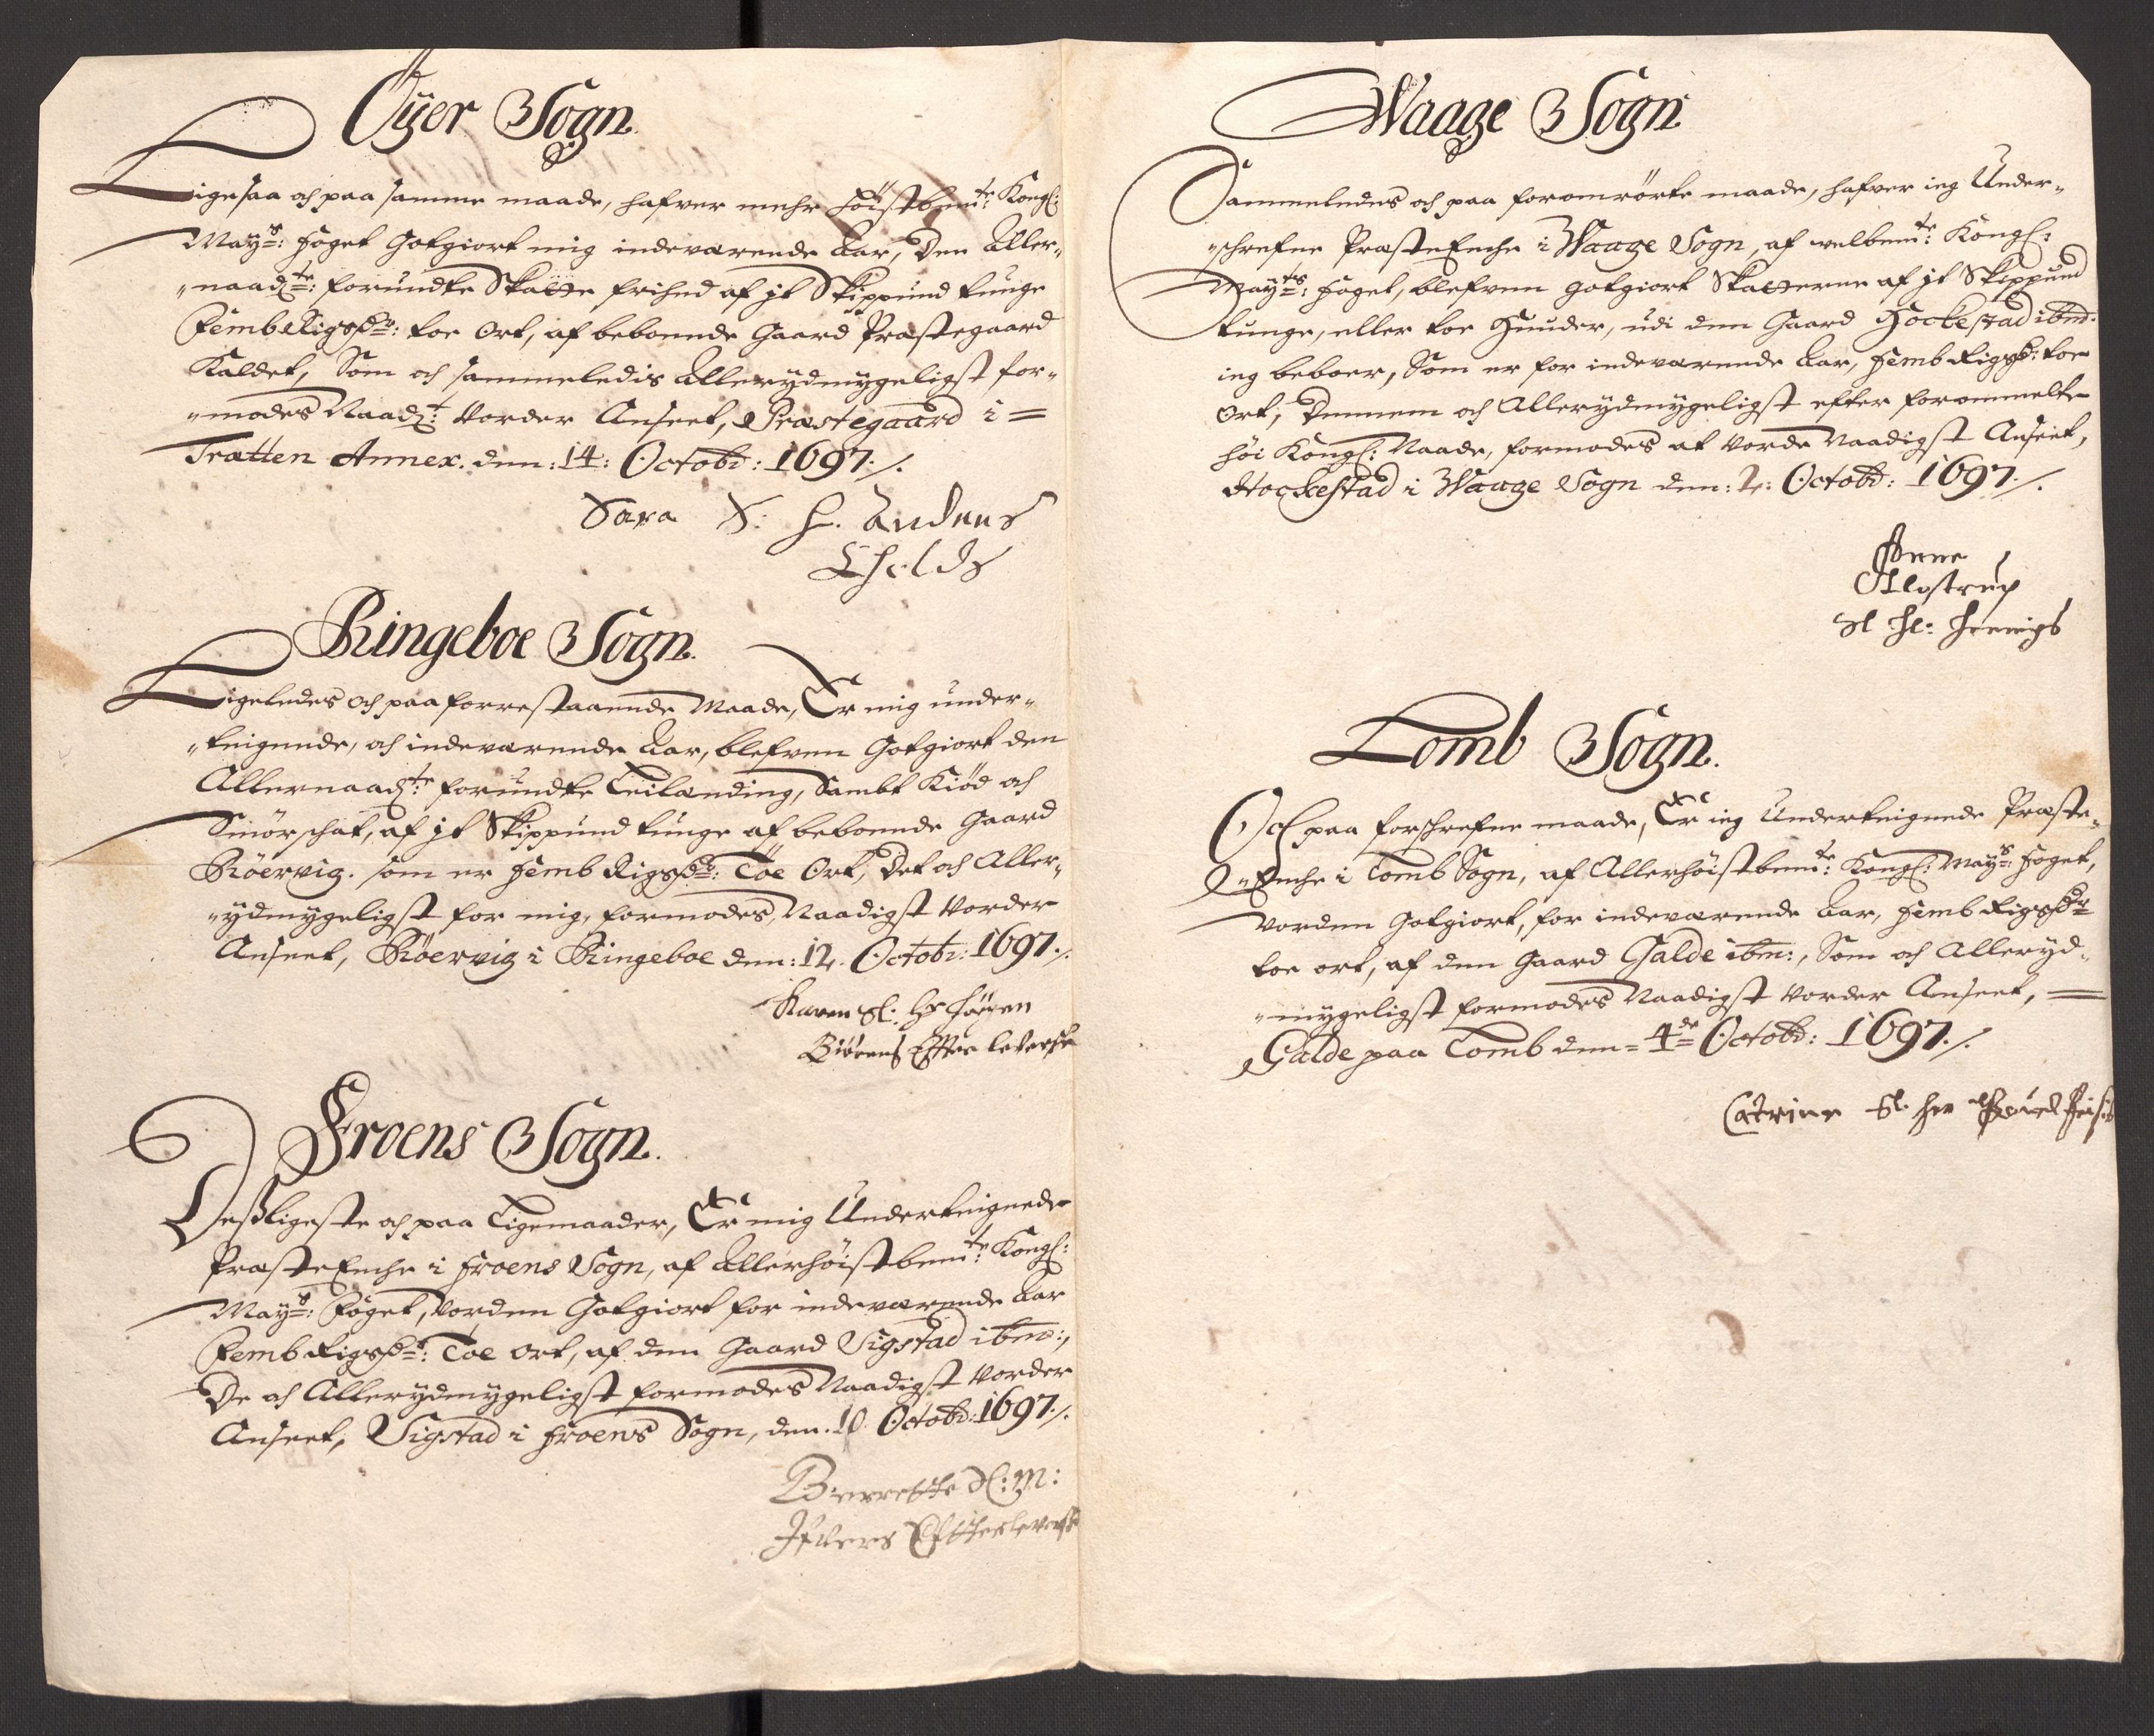 Öÿer Sogn
Ligesaa och paa samme maade, hafver mehr høistbemte: Kongl:
Mays: Foget Gotgiort mig indeværende Aar, Den Aller-
"naadte: forundte Skatte frihed af jt Skippund tunge
Femb Rigsdr: toe Ort, af beboende Gaard Præstegaard
Kaldet, Som och sammeledis Allerydmygeligst for-
"modes Naadt: Vorder Anseet, Præstegaard i =
Tratten Annex. den: 14: Octobr: 1697 ./.
Sara S: H. Anders
Ringeboe Sogn.
Ligeledes och paa forrestaaende Maade, Er mig under-
"teignende, och indeværende Aar, blefven Gotgiort den
Allernaadte: forundte Leilænding, Sambt Kiød och
Smörschat, af jt Skippund tunge af beboende Gaard
Röervig. som er Femb Rigsdr: Toe Ort, Det och Aller-
"ydmygeligst for mig, formodes Naadigst Vorder
Anseet, Röervig i Ringeboe den: 12. Octobr: 1697 ./.
Karen Sl: Hr Jörgen
Biörens Effterleverske
Froens Sogn.
Desligeste och paa Ligemaader, Er mig Underteignede
Præste Enche i Froens Sogn, af Allerhøistbemte: Kongl:
Mays: Foget, Vorden Gotgiort for indeværende Aar
Femb Rigsdr: Toe Ort, af den Gaard Sigstad ibm:,
De och Allerydmygeligst formodes Naadigst Vorder
Anseet, Sigstad i Froens Sogn, den. 10. Octobr: 1697 ./.
Berrette Sl: M:
Ifvers Efterleverske
Waage Sogn
Sammeledes och paa foromrörte maade, hafver ieg Under-
"schrefne Præste Enche i Waage Sogn, af welbemte: Kongl:
Mayts: Foget, blefven gotgiort Skatterne af jt Skippund
tunge, eller toe Huuder, udi den Gaard Hockestad ibmd:
ieg beboer, Som er for indeværende Aar, Femb Rigsdr: toe
Ort, Emmem och Allerydmygeligst efter forommelte
høi Kongl: Naade, formodes at Vorde Naadigst Anseet,
Hockestad i Waage Sogn den: 2: Octobr: 1697 ./.
Anne
Allostrup
Sl Hr: Hennigs
Lomb Sogn.
Och paa forschrefne maade, Er ieg Underteignede Præste-
"Enche i Lomb Sogn, af Allerhøistbemte: Kongl: Mays: Foget,
Vorden Gotgiort, for indeværende Aar, Femb Rigsdr
toe ort, af den Gaard Galde ibm:, Som och Alleryd-
"mygeligst formodes Naadigst Vorder Anseet, =
Galde paa Lomb den = 4de Octobr: 1697 ./.
Catrine Sl. Her Pouel